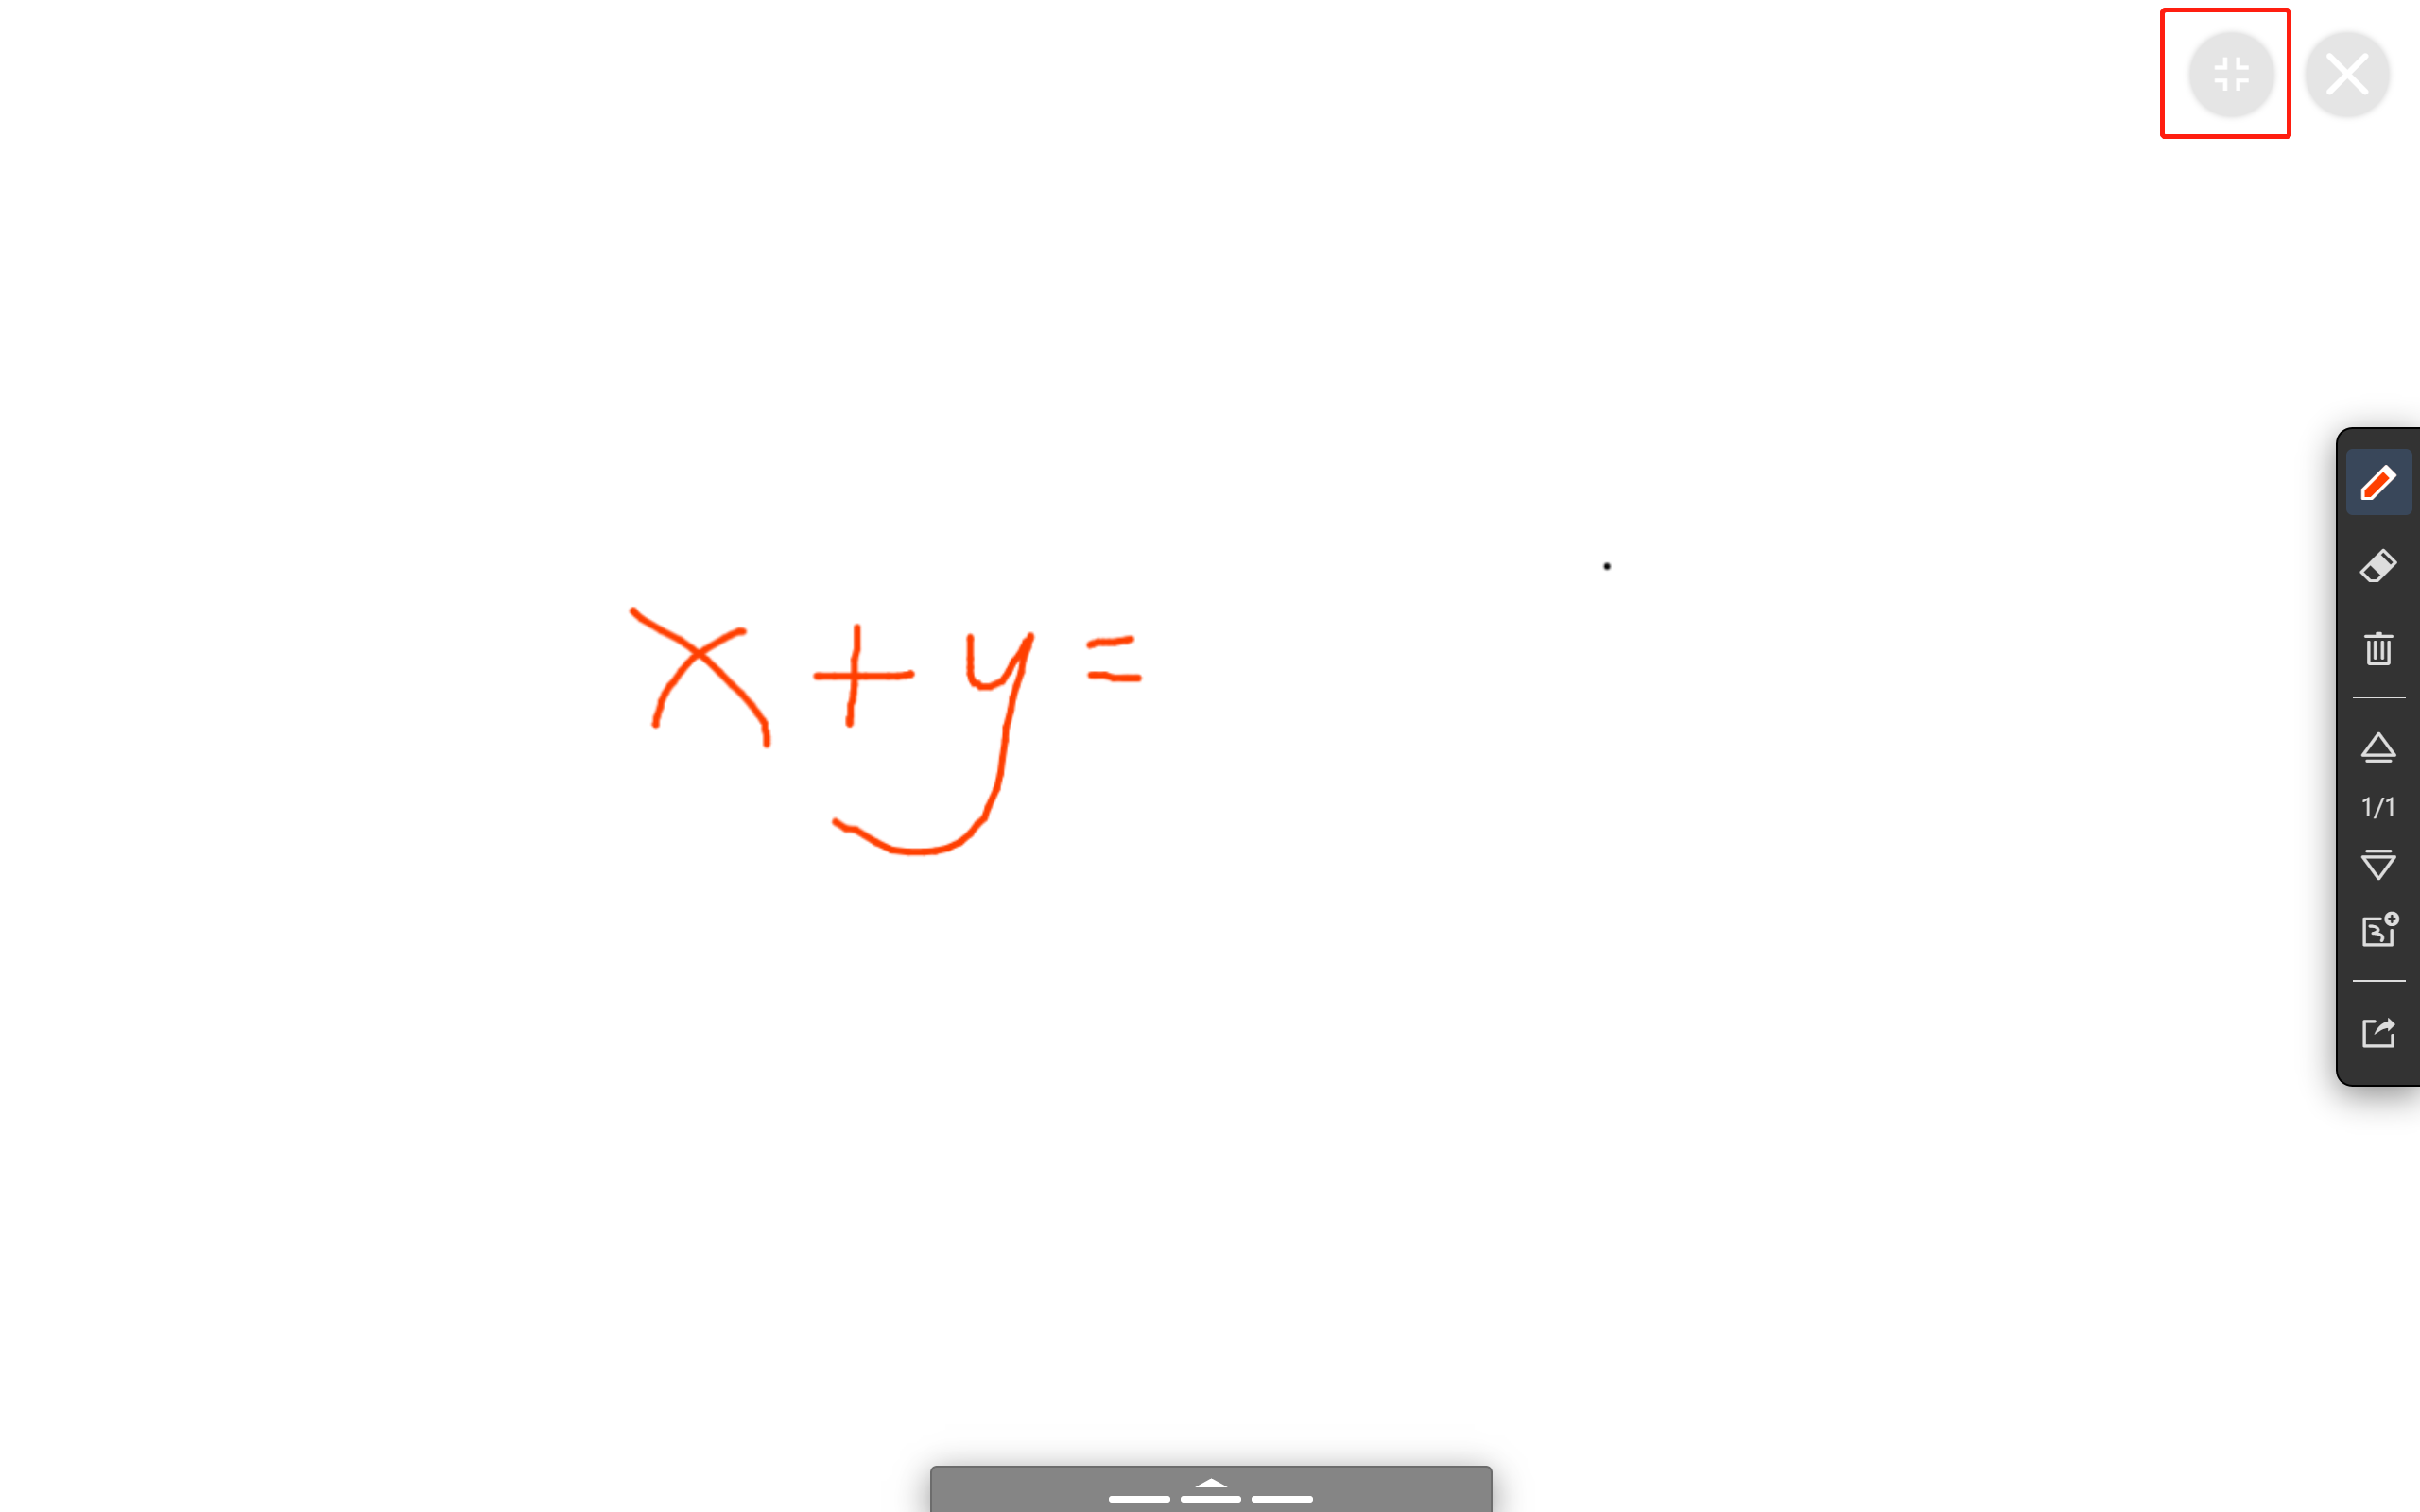 x + y =
1/1